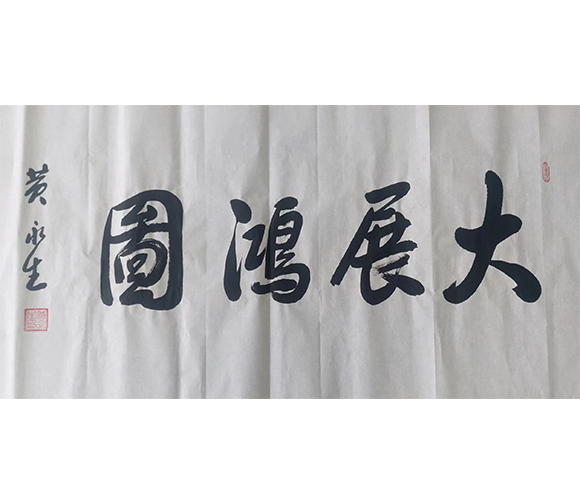 大展鴻圖
黄永生